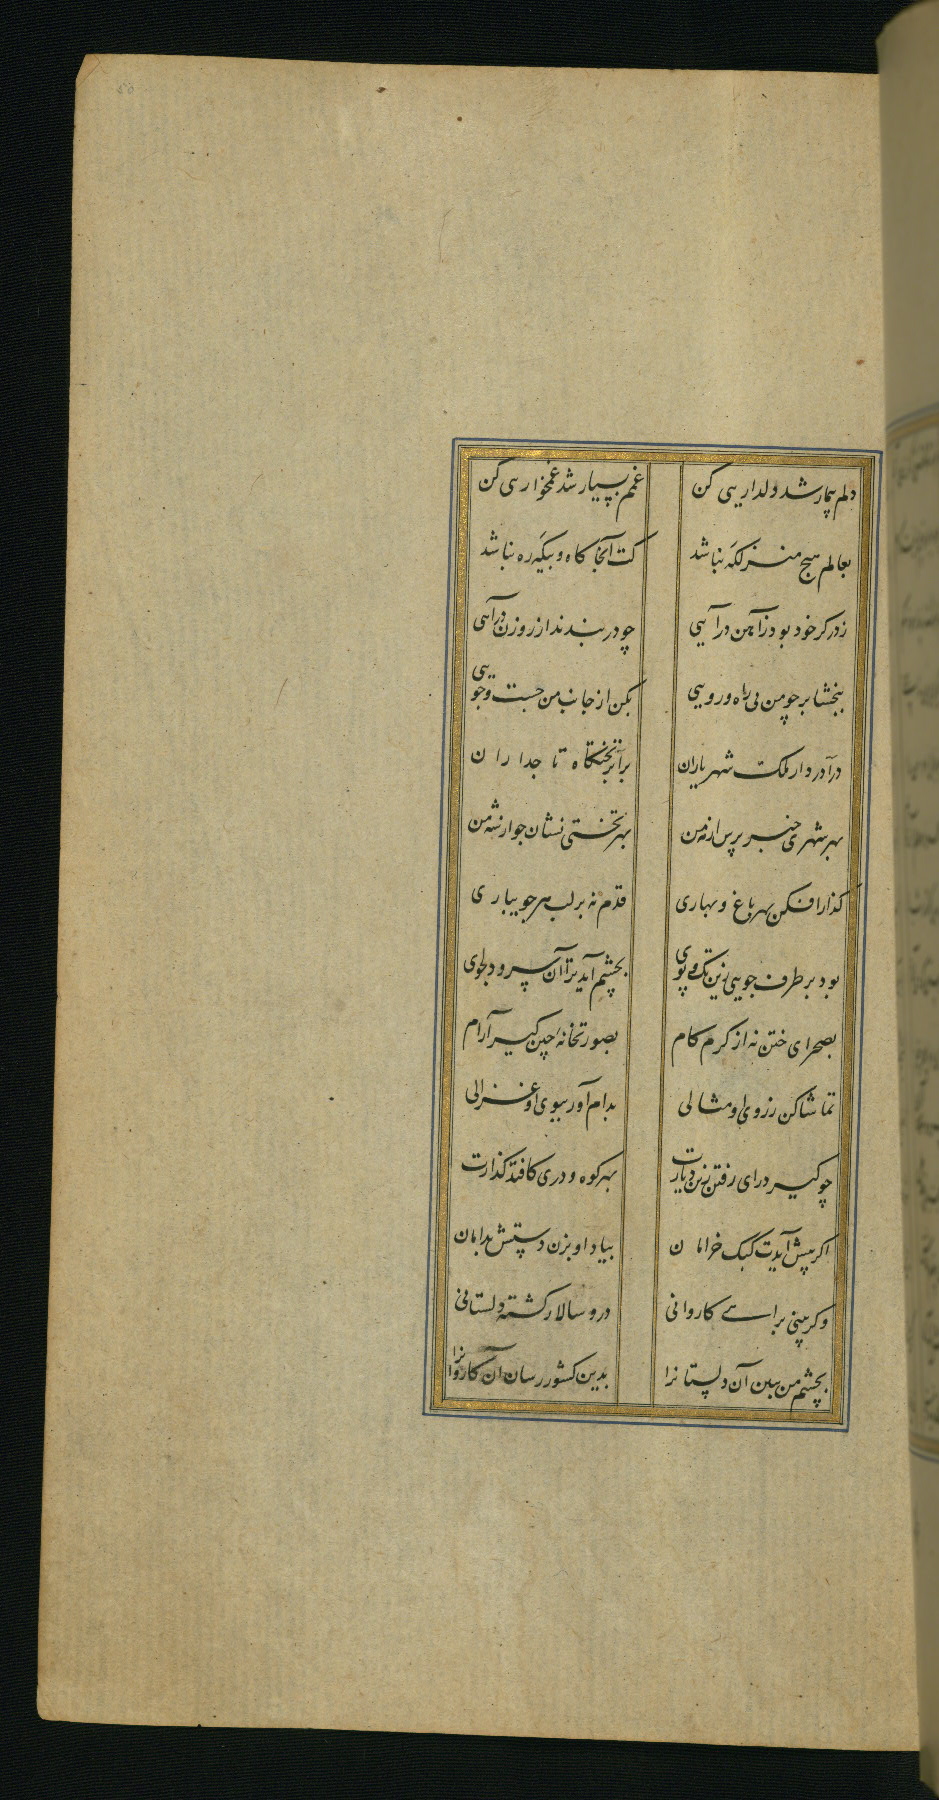 ۵۵
دلم بیمار شد دلداریی کن غمم بسیار شد غمخواریی کن
بعالم هیچ منزلگه نباشد کت آنجا گاه و بیگه ره نباشد
ز در گر خود بود ز آهن درآیی چو در بندند از روزن درآیی
ببخشا بر چو من بی راه و رویی بکن از جانب من جست وجویی
درآ در دار ملک شهریاران برآ بر تختگاه تاجداران
بهر شهری خبر پرس از مه من بهر تختی نشان جو از شه من
گذار افکن بهر باغ و بهاری قدم نه بر لب هر جویباری
بود بر طرف جویی زین تک و پوی بچشم آید ترا آن سرو دلجوی
بصحرای ختن نه از کرم گام بصورتخانه چین گیر آرام
تماشا کن ز روی او مثالی بدام آور ببوی او غزالی
چو گیرد رای رفتن زین دیارت بهر کوه و دری کافتد گذارت
اگر پیش آیدت کبک خرامان بیاد او بزن دستش بدامان
وگر بینی براهی کاروانی درو سالار گشته دلستانی
بچشم من ببین آن دلستانرا بدین کشور رسان آن کاروانرا